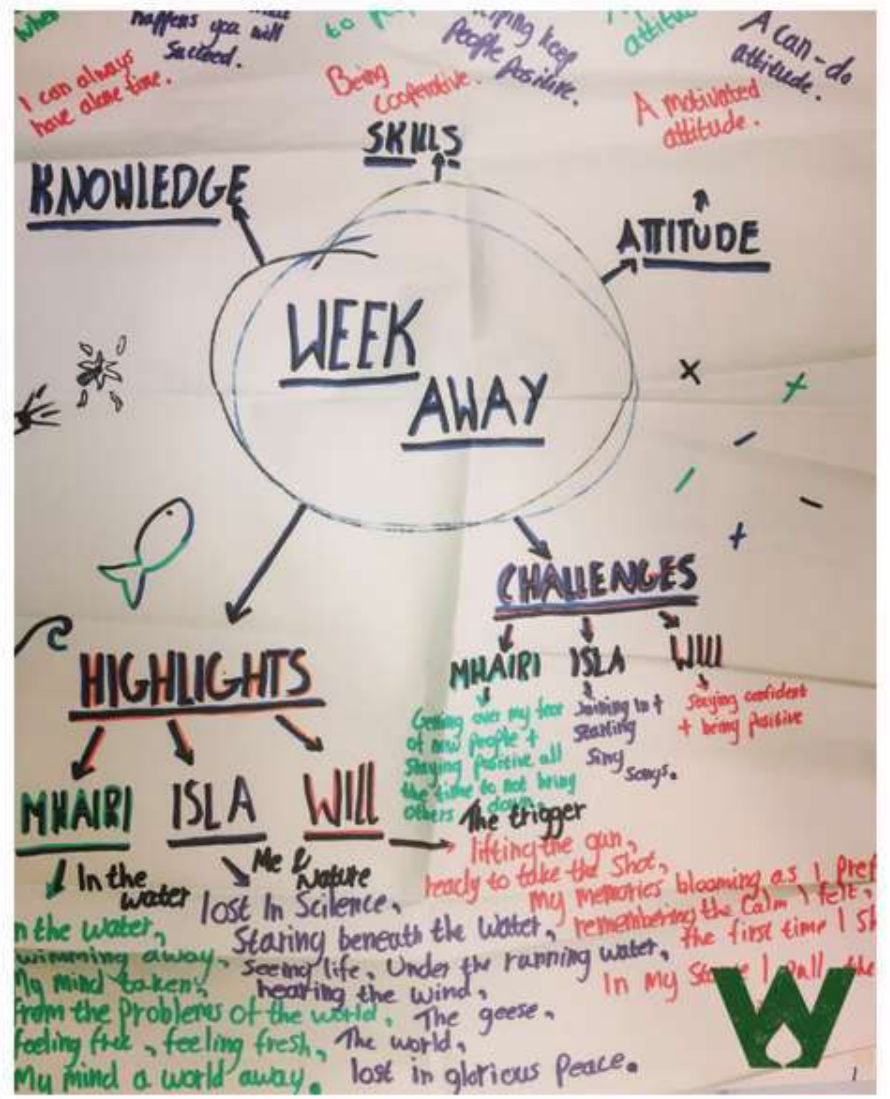 when
happens you will
Succeed.
I can always
have alone time.
to
Being
Cooperative.
helping keep
People
Positive.
attitude
A motivated
attitude.
A can-do
attitude.
SKILLS
KNOWLEDGE
ATTITUDE
WEEK
AWAY
CHALLENGES
MHAIRI
Getting over my fear
of new people +
Staying positive all
the time to not bring
others down.
ISLA
Joining In +
Starling
Sing
Songs.
WILL
Staying confident
+ being Positive
HIGHLIGHTS
MHAIRI
In the
water
n the water,
wimming away,
My mind taken,
from the Problems of the world,
feeling free, feeling fresh,
My mind a world away.
ISLA
Me &
Nature
lost In Scilence,
Staring beneath the Water,
Seeing life, Under the running water,
hearing the wind,
The geese,
The world,
lost in glorious Peace.
WILL
The trigger
lifting the gun,
ready to take the Shot,
my memories blooming as I Pref
remembering the Calm I felt,
the first time I Sh
In my I Pull the
W